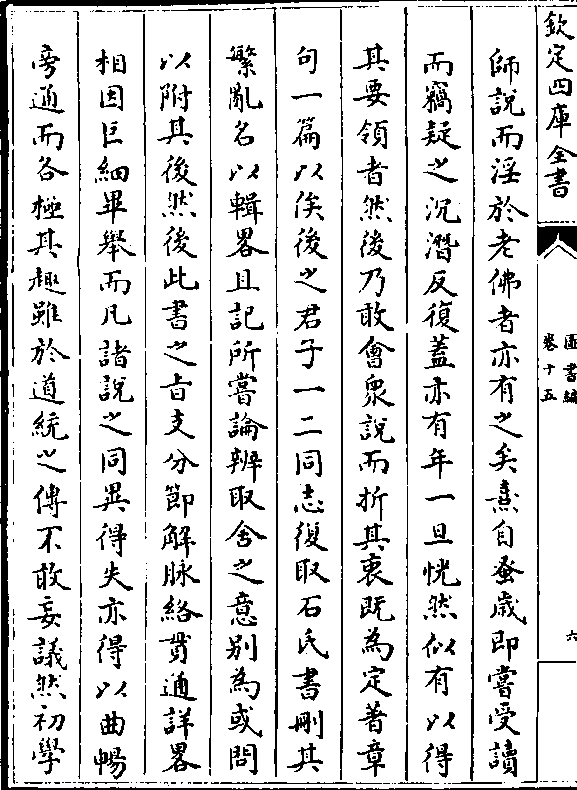 欽定四庫全書
圖書編
卷十五
六
師說而淫於老佛者亦有之矣熹自蚤歲即嘗受讀
而竊疑之沉潛反復蓋亦有年一旦恍然似有以得
其要領者然後乃敢會眾說而折其衷既為定著章
句一篇以俟後之君子一二同志復取石氏書刪其
繁亂名以輯畧且記所嘗論辨取舍之意別為或問
以附其後然後此書之旨支分節解脉絡貫通詳畧
相因巨細畢舉而凡諸說之同異得失亦得以曲暢
旁通而各極其趣雖於道統之傳不敢妄議然初學